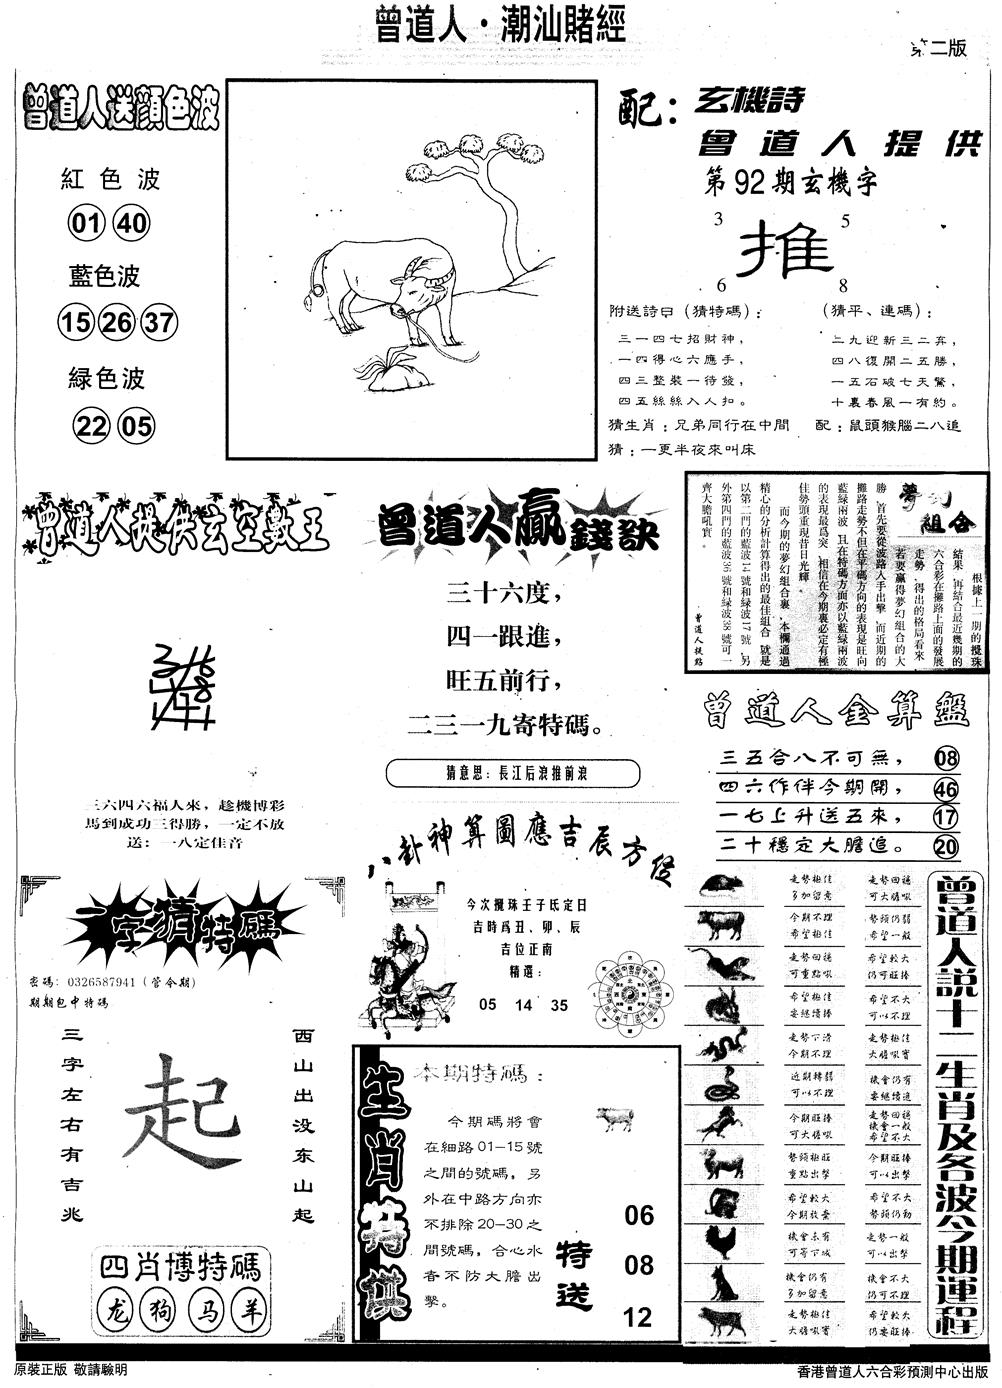 曾道人·潮汕賭經
第二版
曾道人送顏色波
紅色波
01 40
藍色波
15 26 37
緑色波
22 05
配：玄機詩
曾道人提供
第92期玄機字
3 5
推
6 8
附送詩曰（猜特碼）：
三一四七招財神，
一四得心六應手，
四三整裝一待發，
四五絲絲入人扣。
（猜平、連碼）：
二九迎新三二弃，
四八復開二五勝，
一五石破七天驚，
十裏春風一有約。
猜生肖：兄弟同行在中間
配：鼠頭猴腦二八追
猜：一更半夜來叫床
曾道人提供玄空數王
三六四六福人來，趁機博彩
馬到成功三得勝，一定不放
送：一八定佳音
曾道人贏錢訣
三十六度，
四一跟進，
旺五前行，
二三一九寄特碼。
猜意思：長江后浪推前浪
組合
根據上一期的攪珠
結果，再結合最近幾期的
六合彩在攤路上面的發展
走勢，得出的格局看來，
若要贏得夢幻組合的大
勝，首先要從波路入手出擊，而近期的
攤路走勢不但在平碼方向的表現是旺向
藍緑兩波，且在特碼方面亦以藍緑兩波
的表現最爲突，相信在今期裏必定有極
佳勢頭重現昔日光輝。
而今期的夢幻組合裏，本欄通過
精心的分析計算得出的最佳組合，就是
以第二門的藍波14號和緑波17號，另
外第四門的藍波36號和緑波38號可一
齊大膽吼實。
曾道人提點
曾道人金算盤
三五合八不可無， 08
四六作伴今期開， 46
一七上升送五來， 17
二十穩定大膽追。 20
八卦神算圖應吉辰方位
今次攪珠王子氐定日
吉時爲丑、卯、辰
吉位正南
精選：
05 14 35
一字猜特碼
密碼：0326587941（管今期）
期期包中特碼
三字左右有吉兆
起
西山出没东山起
四肖博特碼
龙 狗 马 羊
生肖特供
本期特碼：
今期碼將會
在細路01-15號
之間的號碼，另
外在中路方向亦
不排除20-30之
間號碼，合心水
者不防大膽出
擊。
特送
06
08
12
走勢極佳 走勢回穩
多加留意 可大膽吼
今期不理 勢頭仍弱
希望極佳 希望一般
走勢回穩 希望較大
可重點吼 仍可旺捧
希望極佳 希望不大
要繼續捧 可以不理
走勢下滑 走勢極佳
今期不理 大膽吼實
近期轉弱 機會仍有
可以不理 要繼續追
今期旺捧 走勢回穩
可大膽吼 機會一般
希望不大
勢頭極旺 今期旺捧
重點出擊 可以出擊
希望較大 希望不大
今期放棄 勢頭仍勁
機會未有 走勢一般
可等下城 可一出擊
機會仍有 機會不大
多加留意 仍可不理
走勢極佳 希望較大
大膽吼實 仍要旺捧
曾道人説十二生肖及各波今期運程
原裝正版 敬請驗明
香港曾道人六合彩預測中心出版